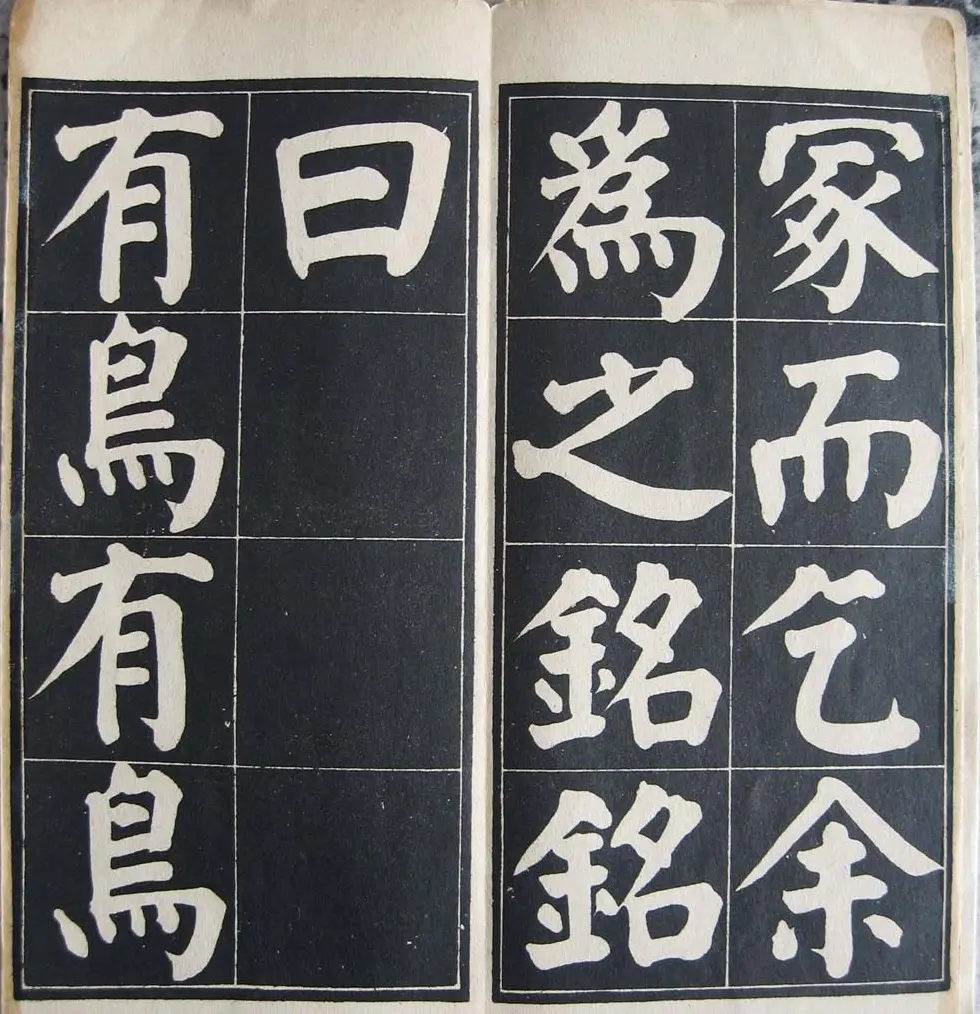 冡而乞余
為之銘銘
曰
有鳥有鳥